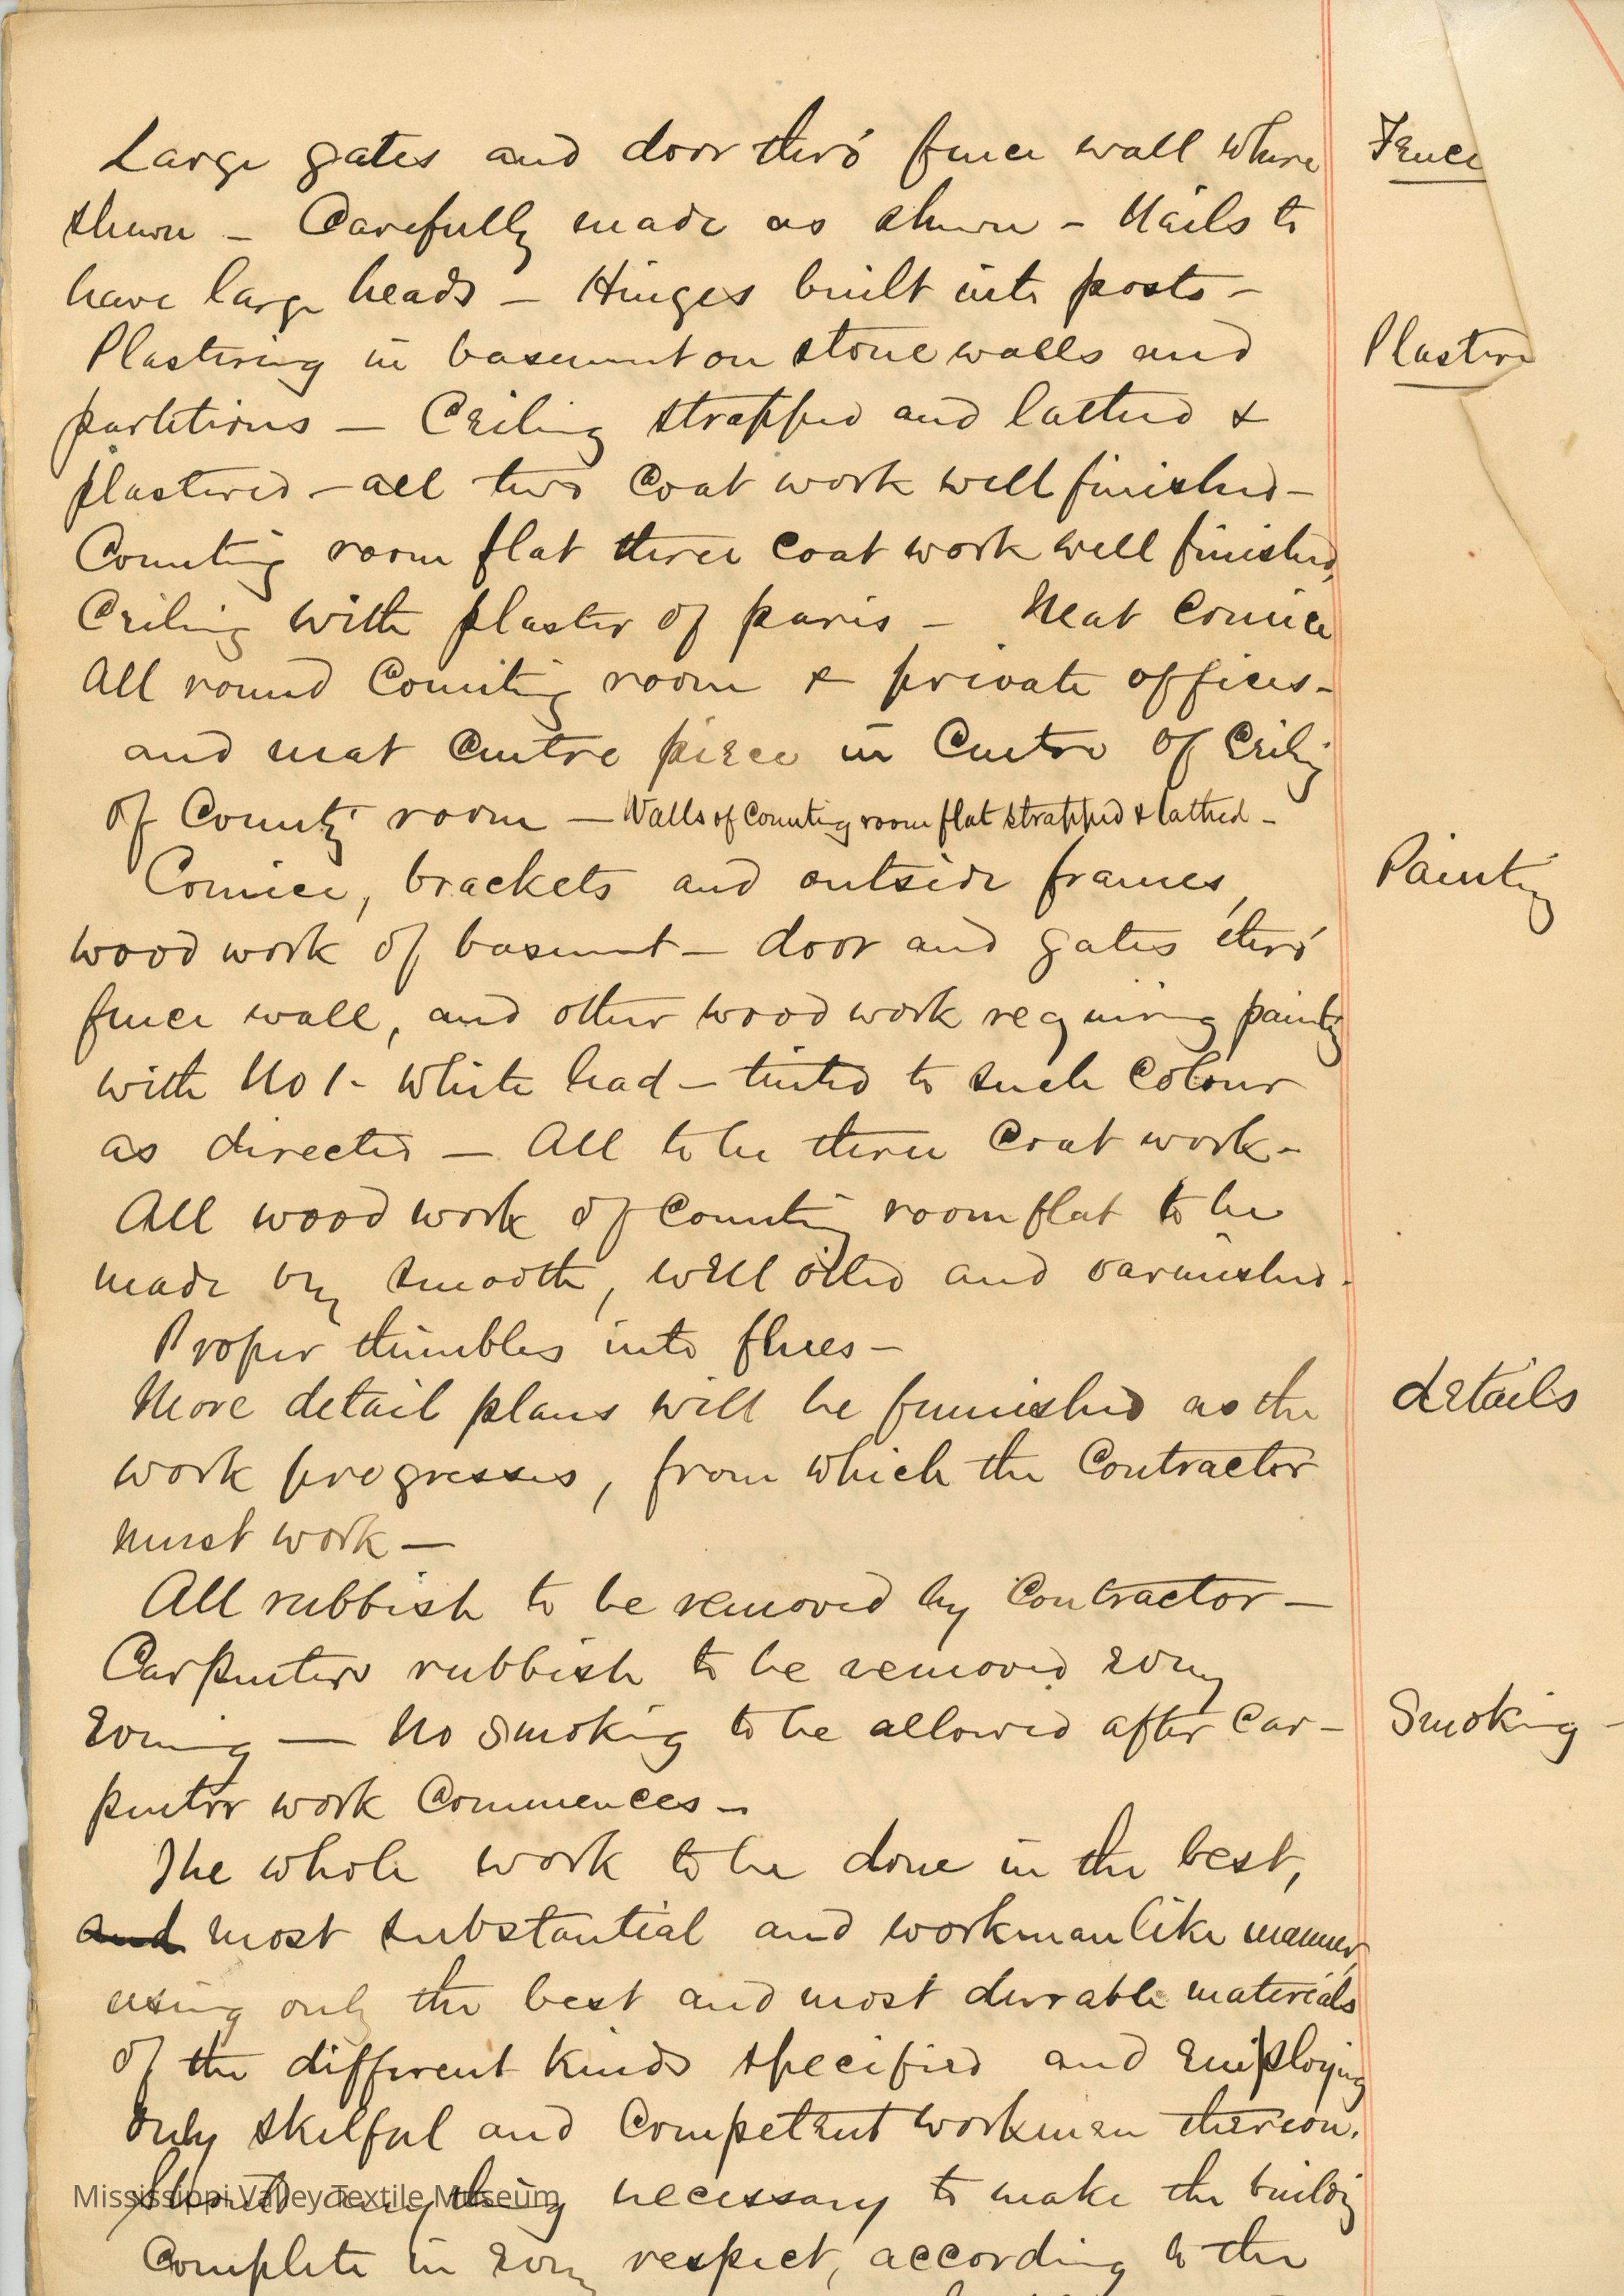 Large gates and door thro' fence wall where
Fence
shewn - Carefully made as shewn - Nails to
have large heads - Hinges built into posts -
Plastering in basement on stone walls and
Plasterin
partitions - Ceiling strapped and lathed &
plastered - all two coat work well finished -
Counting room flat three coat work well finished,
Ceiling with plaster of paris - Neat Cornice
All round Counting room & private offices -
and neat centre piece in centre of Ceiling
of Counting room - Walls of Counting room flat strapped & lathed -
Cornice, brackets and outside frames,
Painting
wood work of basement - door and gates thro'
fence wall, and other wood work requiring painting
with No 1 - White lead - tinted to such Colour
as directed - All to be three Coat work -
All wood work of Counting room flat to be
made very smooth, well oiled and varnished -
Proper thimbles into flues -
More detail plans will be furnished as the
details
work progresses, from which the Contractor
must work -
All rubbish to be removed by Contractor -
Carpenters rubbish to be removed every
Evening - No Smoking to be allowed after Car-
Smoking -
penter work Commences -
The whole work to be done in the best,
and most substantial and workmanlike manner,
using only the best and most durable materials
of the different kinds specified and Employing
only skilful and Competent workmen thereon.
Should anything necessary to make the building
Mississippi Valley Textile Museum
Complete in every respect, according to the